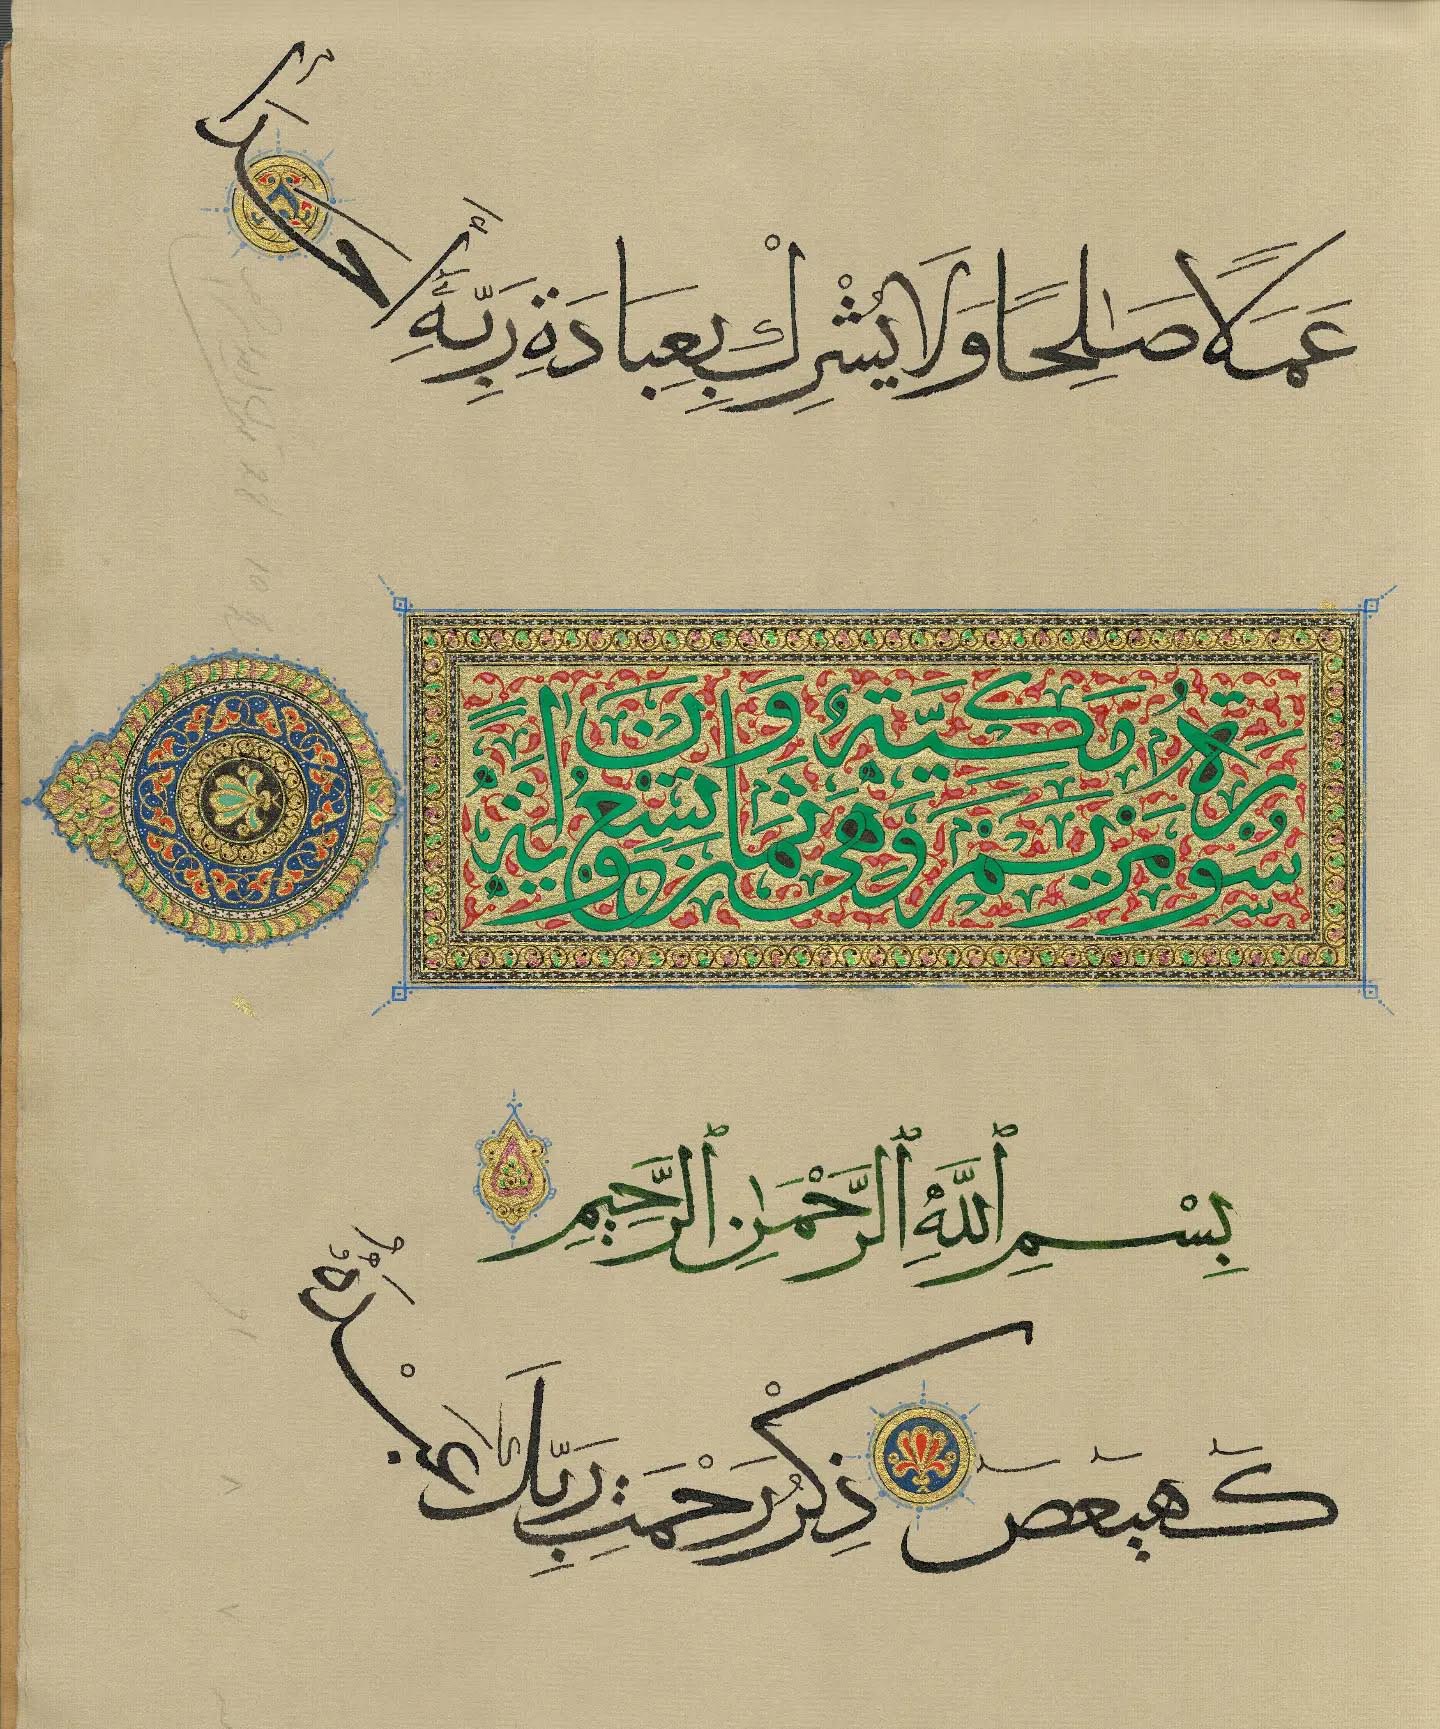 عَمَلًا صَـٰلِحًا وَلَا يُشْرِكْ بِعِبَادَةِ رَبِّهِۦٓ أَحَدًۢا
سُورَةُ مَرْيَمَ مَكِّيَّةٌ وَهِىَ ثَمَانٍ وَتِسْعُونَ اٰيَةً
بِسْمِ ٱللَّهِ ٱلرَّحْمَـٰنِ ٱلرَّحِيمِ
كٓهيعٓصٓ ذِكْرُ رَحْمَتِ رَبِّكَ عَبْدَهُۥ